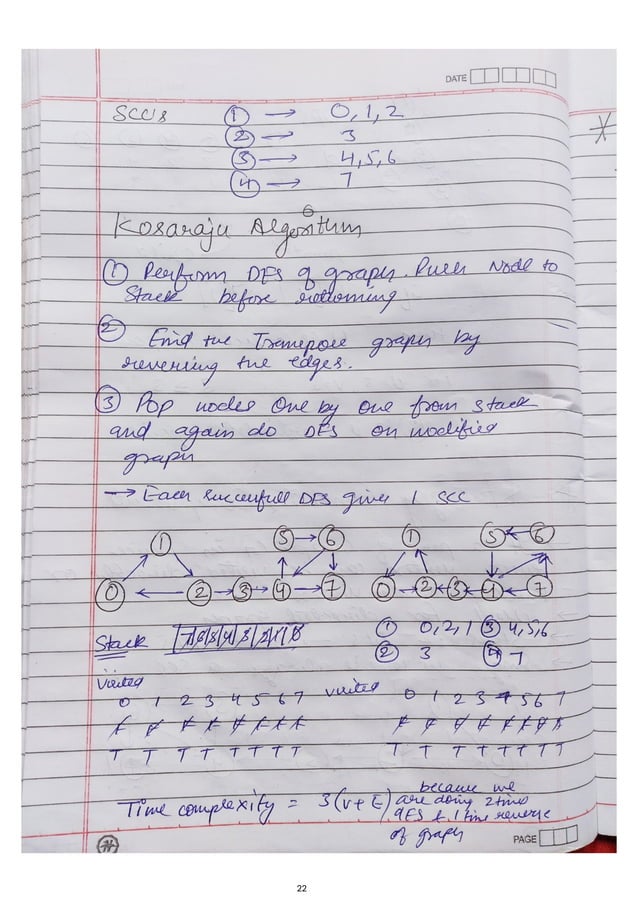 DATE
SCC's ① → 0, 1, 2
② → 3
③ → 4, 5, 6
④ → 7
Kosaraju Algorithm
① Perform DFS of graph. Push Node to
Stack before returning
② Find the Transpose graph by
reversing the edges.
③ Pop nodes One by one from stack
and again do DFS on modified
graph
→ Each successfull DFS gives 1 SCC
1 5 → 6 1 5 ← 6
0 ← 2 → 3 → 4 → 7 0 → 2 ← 3 ← 4 ← 7
Stack
① 0, 2, 1 ③ 4, 5, 6
② 3 ④ 7
Visited visited
0 1 2 3 4 5 6 7 0 1 2 3 4 5 6 7
F F F F F F F F F F F F F F F F
T T T T T T T T T T T T T T T T
Time complexity = 3(V+E) because we
are doing 2 time
DFS & 1 time reverse
of graph
PAGE
22